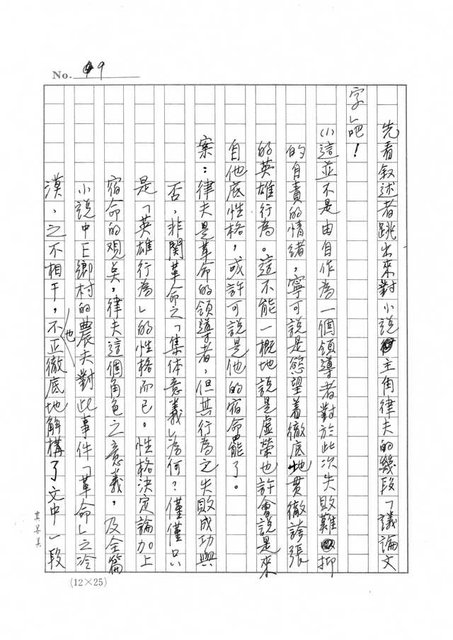 No. 49
先看叙述者跳出來對小說主角律夫的幾段「議論文
字」吧！
(1)這並不是由自作為一個領導者對於此次失敗難抑
的自責的情緒，寧可說是慾望着徹底地貫徹誇張
的英雄行為。這不能一概地說是虛榮也許會說是來
自他底性格，或許可說是他的宿命罷了。
案：律夫是革命的領導者，但其行為之失敗成功與
否，非關革命之「集体意義」為何？僅僅只
是「英雄行為」的性格而已。性格決定論加上
宿命的观點，律夫這個角色之意義，及全篇
小說中E鄉村的農夫對此事件「革命」之冷
漠，之不相干，不也正徹底地解構了文中一段
(12×25)